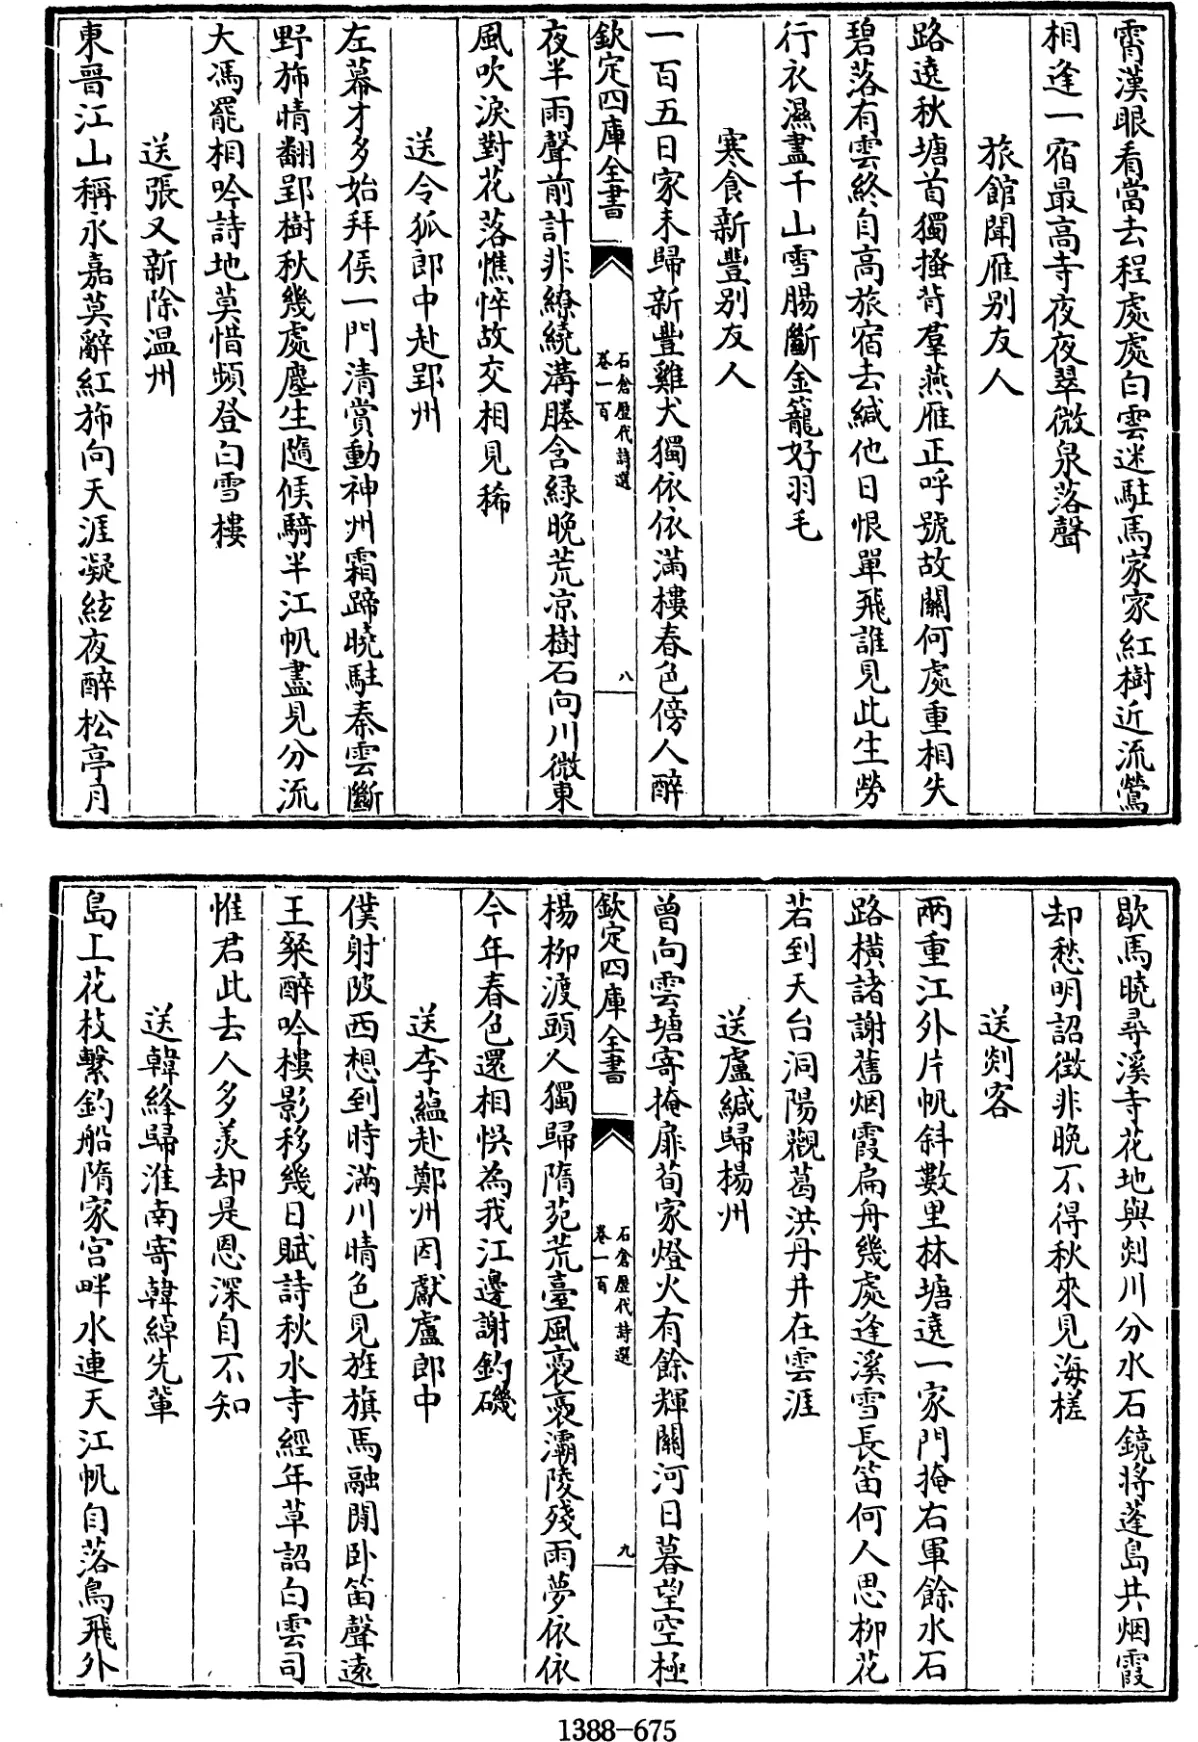 霄漢眼看當去程處處白雲迷駐馬家家紅樹近流鶯
相逢一宿最高寺夜夜翠微泉落聲
旅館聞雁别友人
路遶秋塘首獨搔背羣燕雁正呼號故關何處重相失
碧落有雲終自高旅宿去緘他日恨單飛誰見此生勞
行衣濕盡千山雪腸斷金籠好羽毛
寒食新豐别友人
一百五日家未歸新豐雞犬獨依依滿樓春色傍人醉
欽定四庫全書
石倉歷代詩選
卷一百
八
夜半雨聲前計非繚繞溝塍含緑晚荒凉樹石向川微東
風吹淚對花落憔悴故交相見稀
送令狐郎中赴郢州
左幕才多始拜侯一門清賞動神州霜蹄曉駐秦雲斷
野斾晴翻郢樹秋幾處塵生隨候騎半江帆盡見分流
大馮罷相吟詩地莫惜頻登白雪樓
送張又新除温州
東晉江山稱永嘉莫辭紅斾向天涯凝絃夜醉松亭月
歇馬曉尋溪寺花地與剡川分水石鏡將蓬島共烟霞
却愁明詔徴非晚不得秋來見海槎
送剡客
兩重江外片帆斜數里林塘遶一家門掩右軍餘水石
路横諸謝舊烟霞扁舟幾處逢溪雪長笛何人思柳花
若到天台洞陽觀葛洪丹井在雲涯
送盧緘歸楊州
曾向雲塘寄掩扉荀家燈火有餘輝關河日暮望空極
欽定四庫全書
石倉歷代詩選
卷一百
九
楊柳渡頭人獨歸隋苑荒臺風裊裊灞陵殘雨夢依依
今年春色還相悞為我江邊謝釣磯
送李蘊赴鄭州因獻盧郎中
僕射陂西想到時滿川晴色見旌旗馬融閒卧笛聲遠
王粲醉吟樓影移幾日賦詩秋水寺經年草詔白雲司
惟君此去人多羡却是恩深自不知
送韓絳歸淮南寄韓綽先輩
島上花枝繫釣船隋家宫畔水連天江帆自落鳥飛外
1388-675